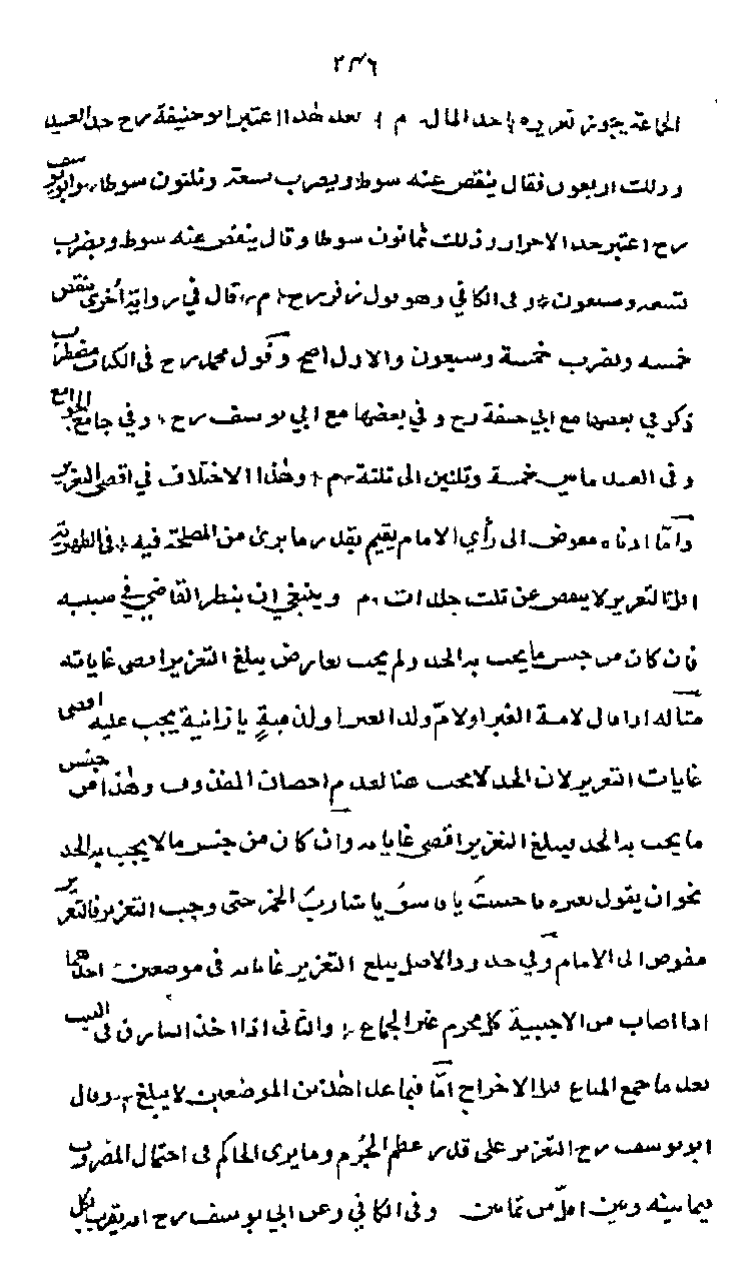 ٢٤٦
الجماعة يجوز تعزيره باخذ المال م ؛ بعد هذا اعتبر ابو حنيفة رح حد العبيد
وذلك اربعون فقال ينقص عنه سوط ويضرب تسعة وثلثون سوطا، وابو يوسف
رح اعتبر حد الاحرار وذلك ثمانون سوطا وقال ينقص عنه سوط ويضرب
تسعة وسبعون ؛ وفى الكافي وهو قول زفر رح ؛ م ؛ قال في رواية اُخرى ينقص
خمسة ويضرب خمسة وسبعون والاول اصح وقول محمد رح فى الكتاب مضطرب
ذكر في بعضها مع ابي حنيفة رح وفي بعضها مع ابي يوسف رح ؛ وفي جامع الجوامع
وفى العبد ما بين خمسة وثلثين الى ثلثة م ؛ وهٰذا الاختلاف في اقصى التعزير
وامّا ادناه مفوض الى رأي الامام يقيم بقدر ما يرى من المصلحة فيه ؛ فى الظهيرية
التعزير لا ينقص عن ثلث جلدات م وينبغي ان ينظر القاضي في سببه
فان كان من جنس ما يجب به الحد ولم يجب بعارض يبلغ التعزير اقصى غاياته
مثاله اذا قال لامة الغير او لامّ ولد الغير او لذمية يا زانية يجب عليه اقصى
غايات التعزير لان الحد لا يجب هنا لعدم احصان المقذوف وهٰذا من جنس
ما يجب به الحد فيبلغ التعزير اقصى غاياته وان كان من جنس ما لا يجب به الحد
نحو ان يقول لغيره يا خبيث يا فاسق يا شارب الخمر حتى وجب التعزير فالتعزير
مفوض الى الامام وفي حدود الاصل يبلغ التعزير غاياته فى موضعين احدهما
اذا اصاب من الاجنبية كل محرم غير الجماع ؛ والثانى اذا اخذ السارق فى البيت
بعد ما جمع المتاع قبل الاخراج امّا فيما عدا هٰذين الموضعين لا يبلغ ؛ وقال
ابو يوسف رح التعزير على قدر عظم الجُرم وما يرى الحاكم فى احتمال المضروب
فيما بينه وبين اقلّ من ثمانين وفى الكافي وعن ابي يوسف رح انه يقرب كل